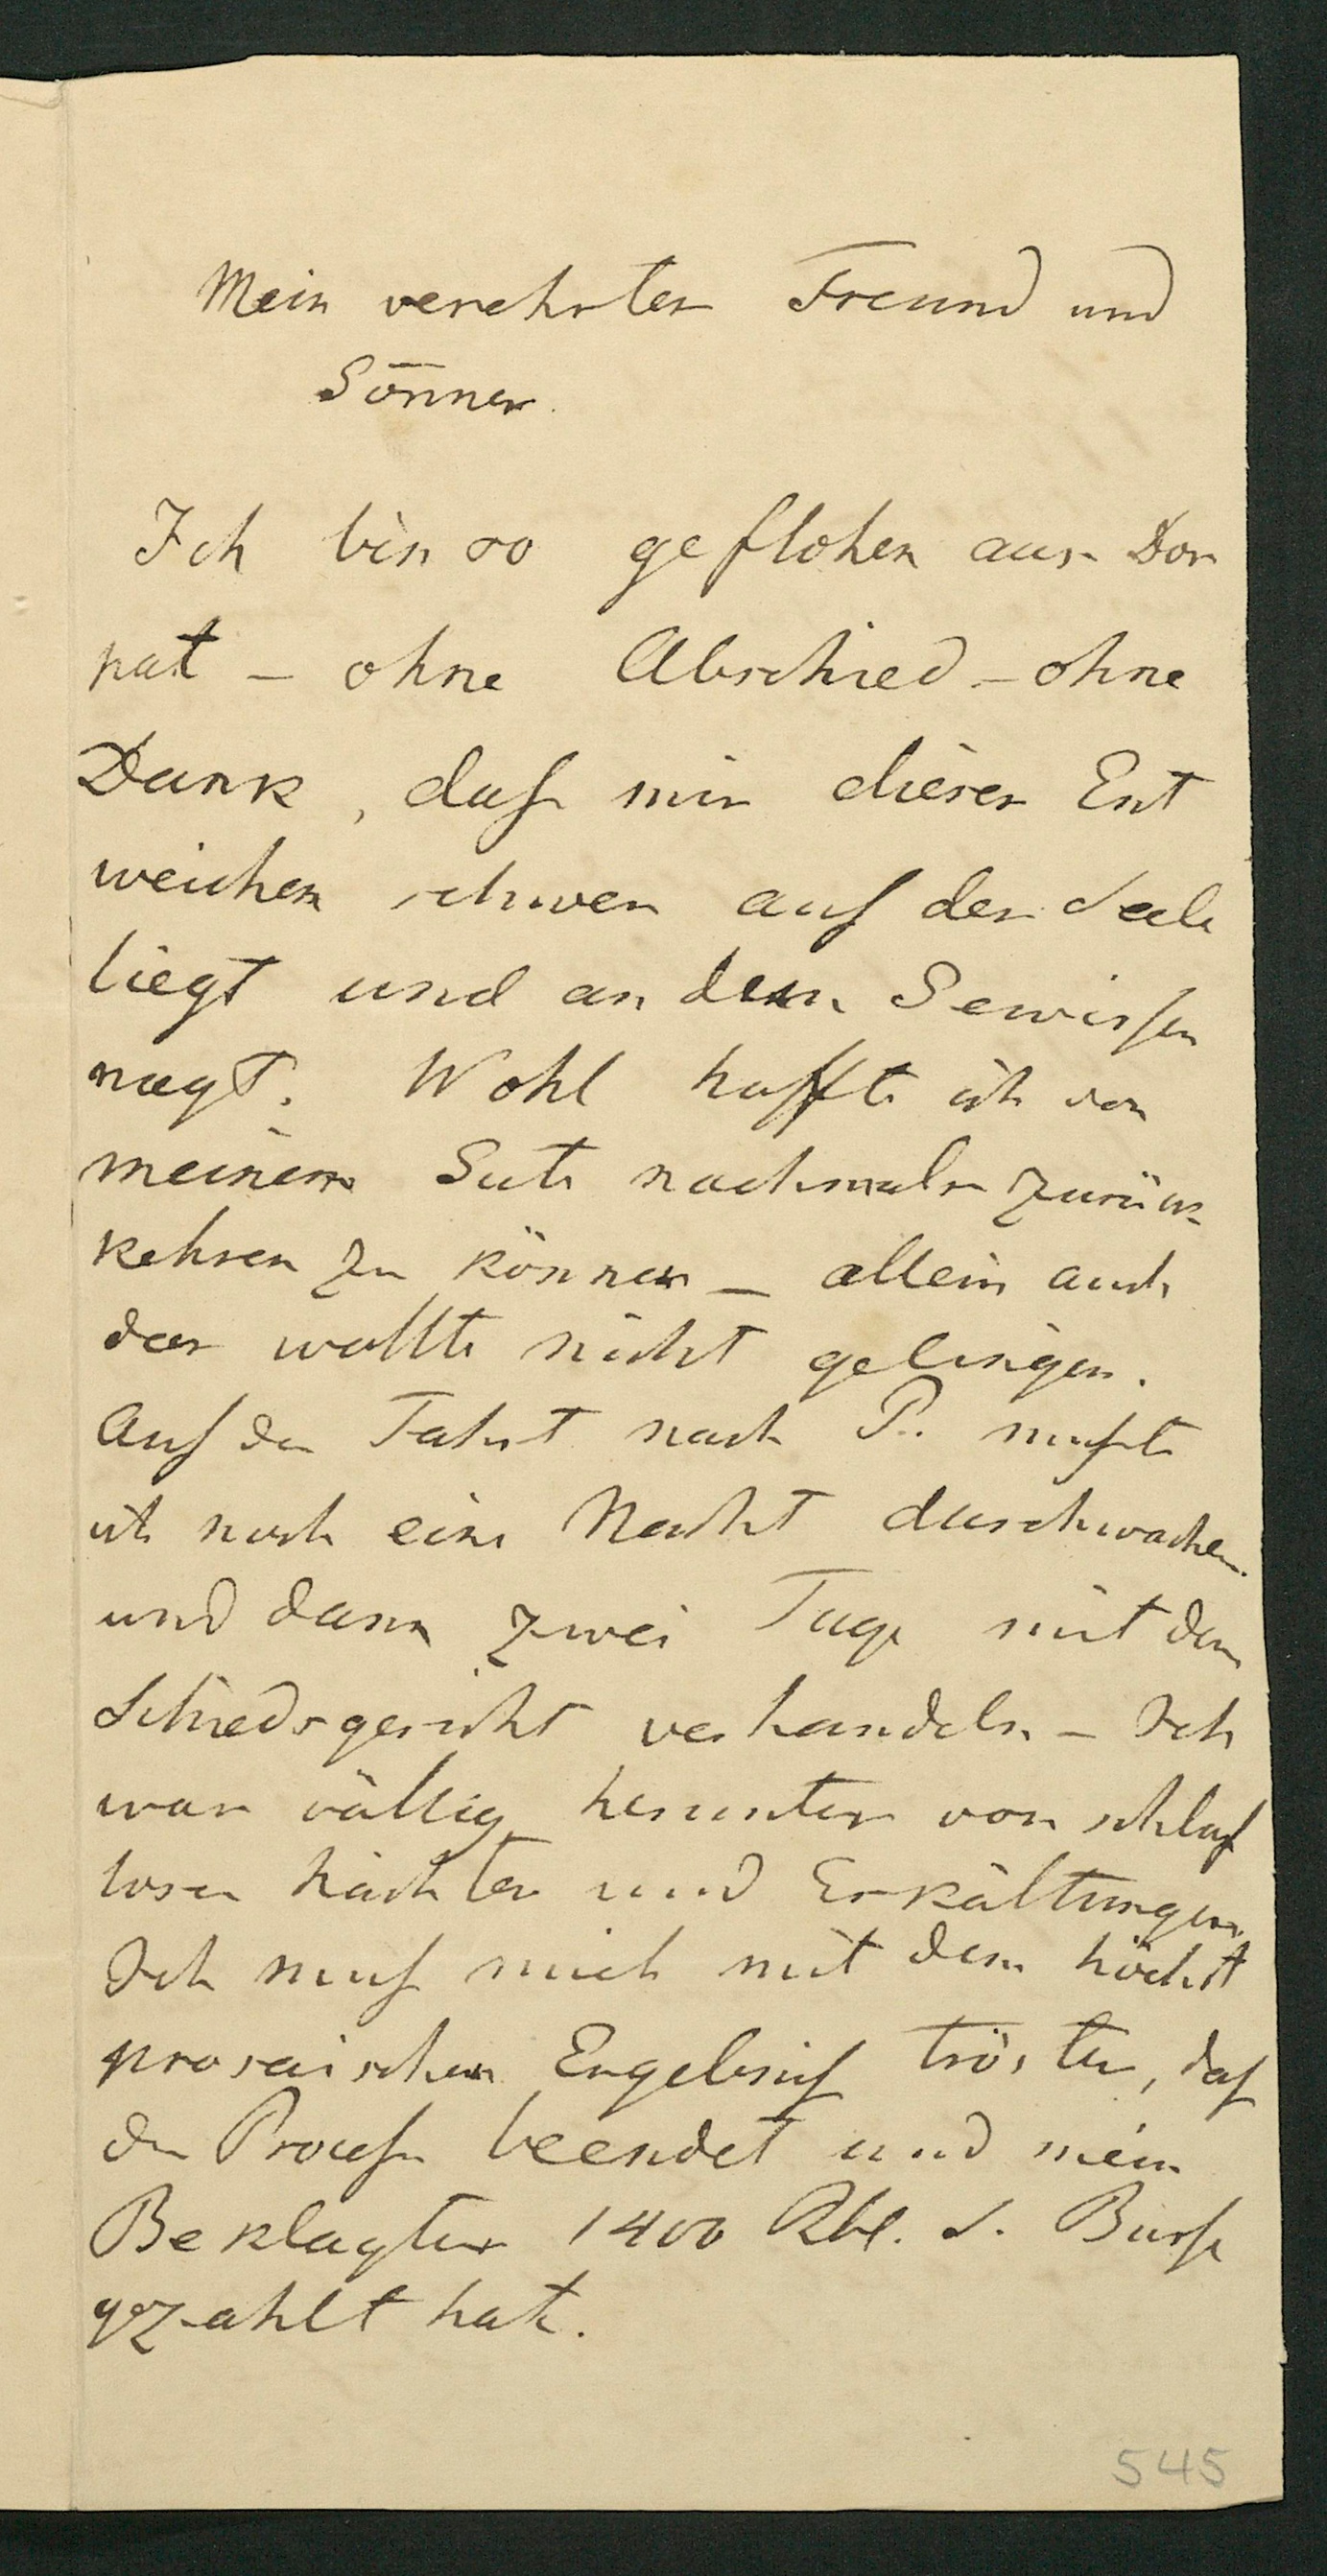 Mein verehrter Freund und
Gönner.
Ich bin so geflohen aus Dor
pat – ohne Abschied – ohne
Dank, daß mir dieses Ent
weichen schwer auf der Seele
liegt und an dem Gewissen
nagt. Wohl hoffte ich von
meinem Gute nochmals zurück
kehren zu können – allein auch
das wollte nicht gelingen.
Auf der Fahrt nach P. mußte
ich noch eine Nacht durchwachen.
und dann zwei Tage mit dem
Schiedsgericht verhandeln – Ich
war völlig herunter von schlaf
losen Nächten und Erkältungen.
Ich muß mich mit dem höchst
prosaischen Ergebniß trösten, daß
der Proceß beendet und mein
Beklagter 1400 Rbl. S. Buße
gezahlt hat.
545